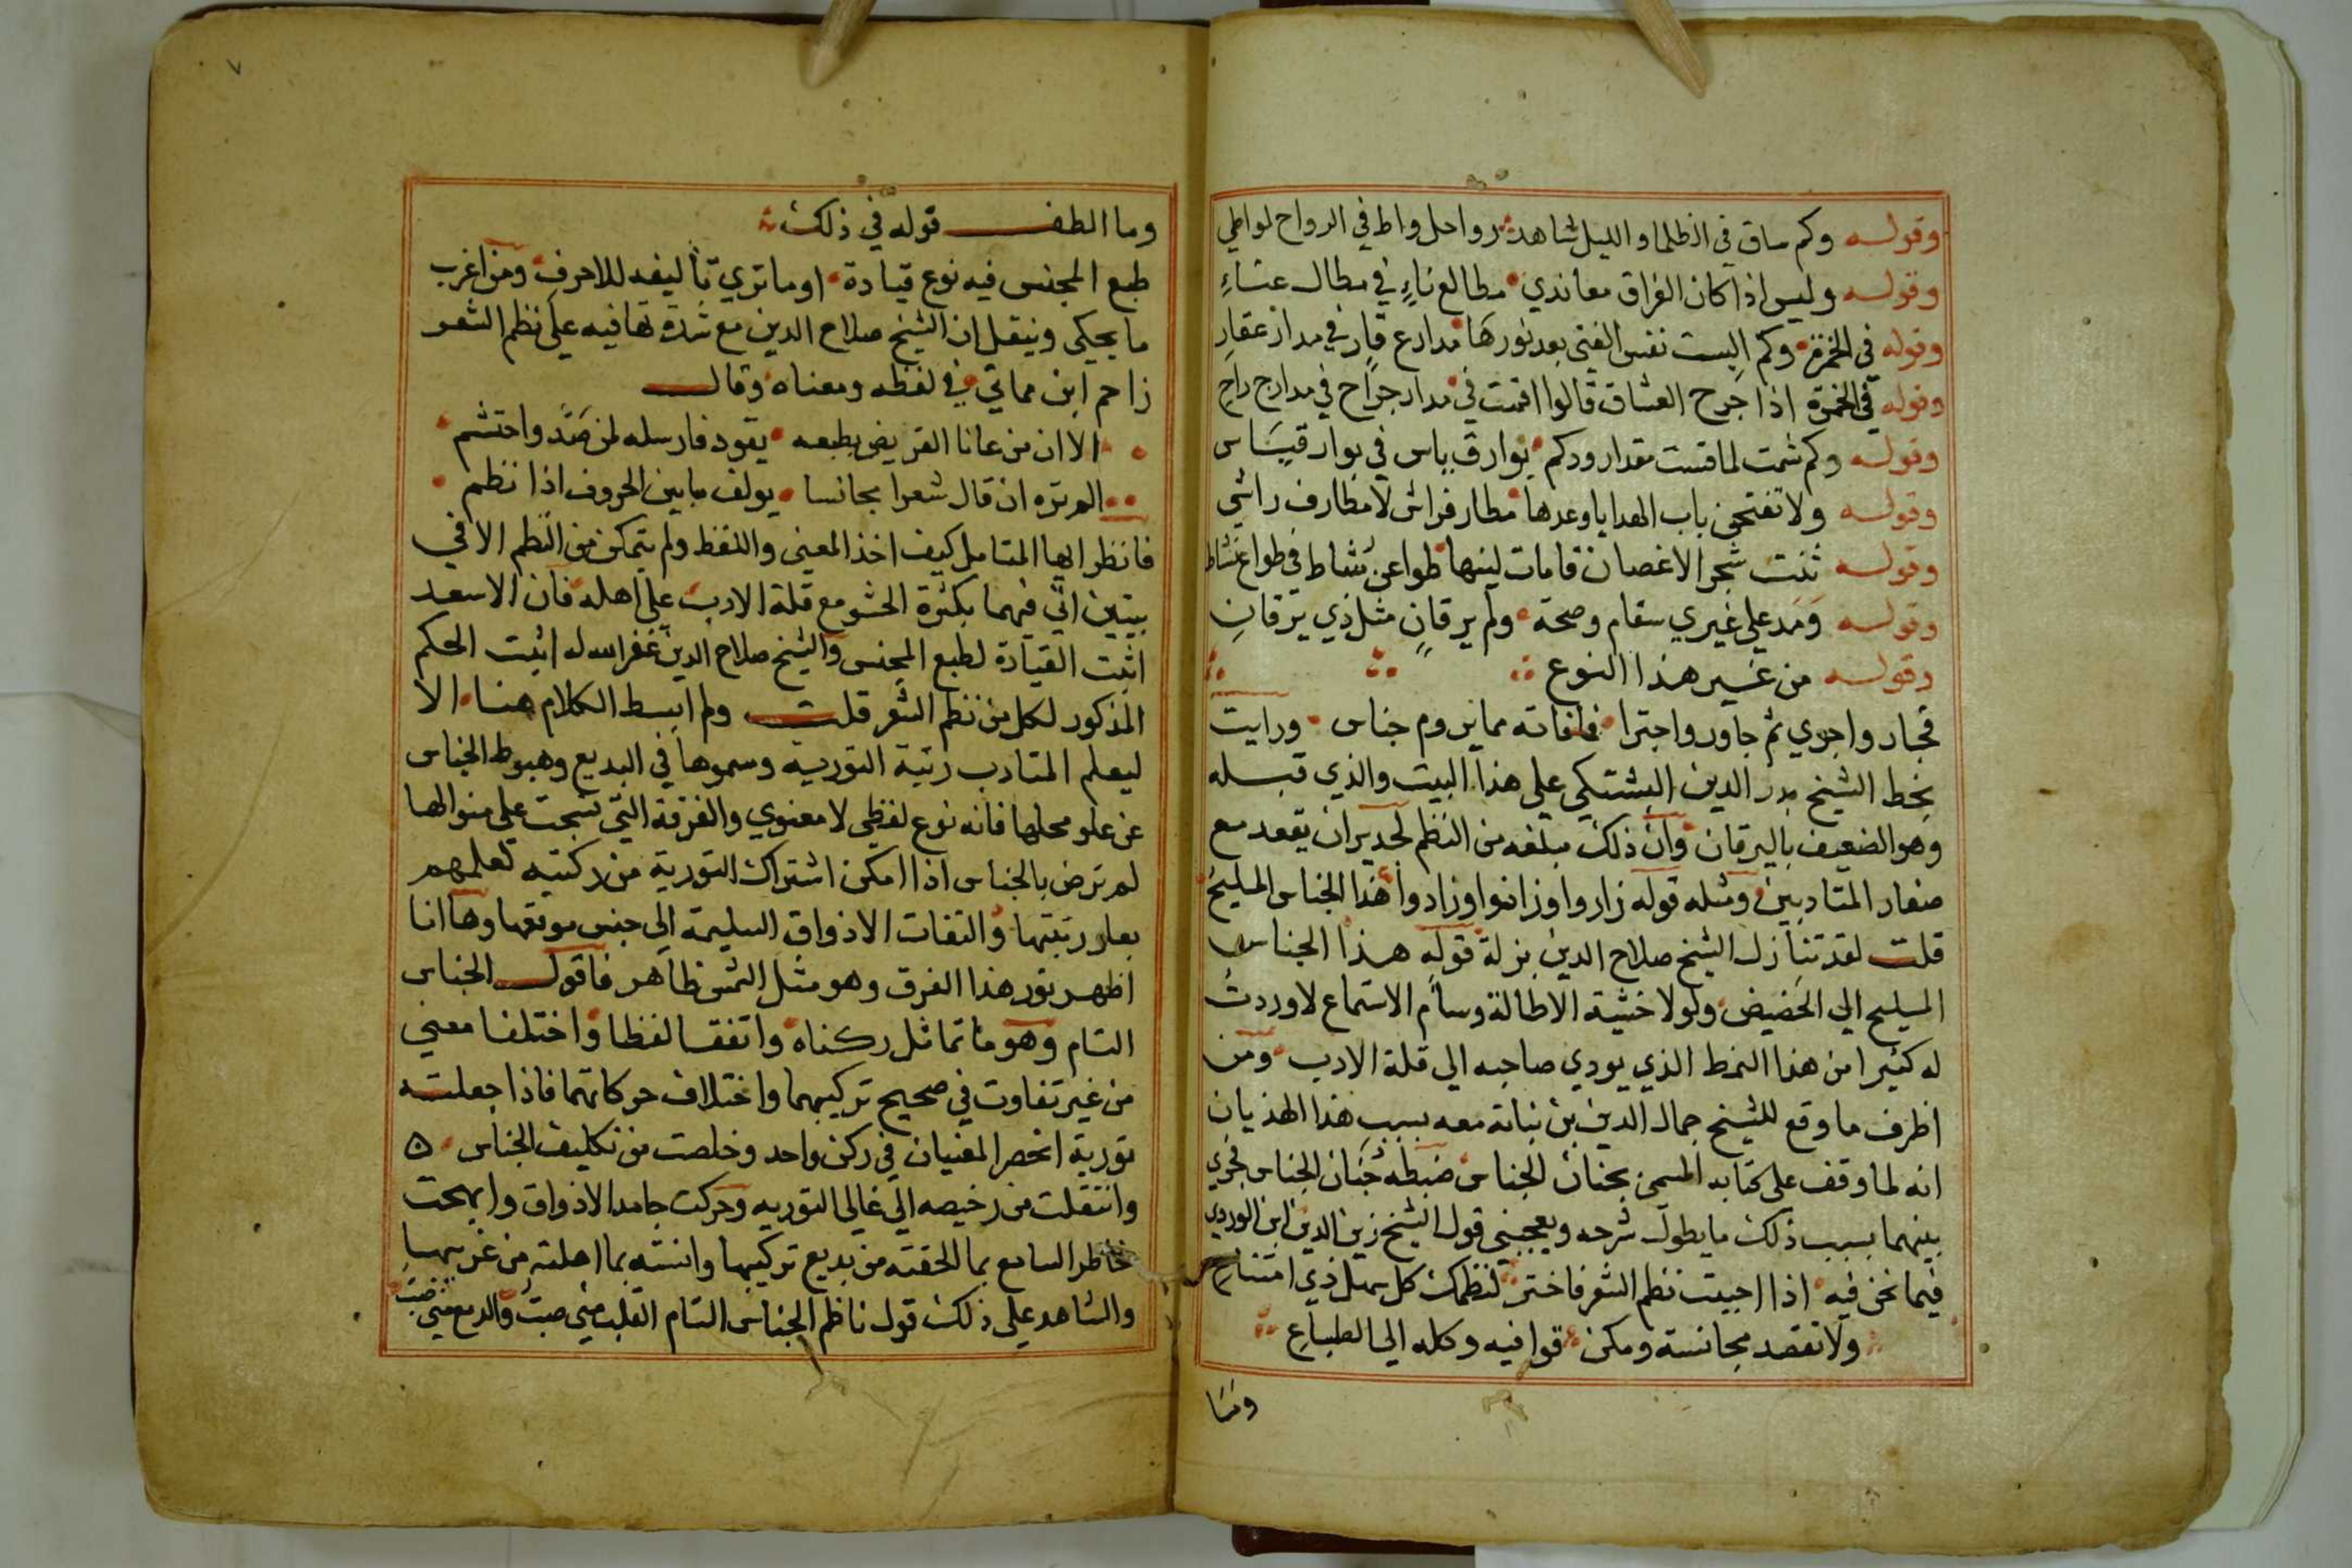 وقوله وكم ساق في الظلما والليل شاهد رواحل واط في الرواح لواطي
وقوله وليس اذا كان الفراق معاندي مطالع ناءٍ في مطال عناءِ
وقوله في الخمرة وكم البست نفس الفتى بعد نورها مدارع قارٍ في مدار عقارِ
وقوله في الخمرة اذا جرح العشاق قالوا اقمت في مدار جراح في مدارج راح
وقوله وكم شمت لما قست مقدار ودكم بوارق ياس في بوار قياس
وقوله ولا تفتحن باب الهدايا وعدها مطار فراش لا مطارف راشي
وقوله ثنت شجر الاغصان قامات لينها طواعن شاط في طواع نشاط
وقوله ومد علي غيري سقام وصحة ولم يرقانٍ مثل ذي يرقانِ
وقوله من غير هذا النوع
فجار واجري ثم جاور واجترا فافاته مما يروم جناس ورايت
بخط الشيخ بدر الدين البشتكي علي هذا البيت والذي قبله
وهو الضعيف باليرقان وان ذلك مبلغه من النظم لجدير ان يقعد مع
صغار المتادبين ومثله قوله زاروا وزانوا وزادوا هذا الجناس المليح
قلت لقد تنازل الشيخ صلاح الدين بزلة قوله هذا الجناس
المليح الي الحضيض ولولا خشية الاطالة وسأم الاستماع لاوردت
له كثيرا من هذا النمط الذي يودي صاحبه الي قلة الادب ومن
اظرف ما وقع للشيخ جمال الدين بن نباتة معه بسبب هذا الهذيان
انه لما وقف علي كتابه المسمى بجنان الجناس ضبطه جنان الجناس فجري
بينهما بسبب ذلك ما يطول شرحه ويعجبني قول الشيخ زين الدين ابن الوردي
فيما نحن فيه اذا احببت نظم الشعر فاختر لنظمك كل سهل ذي امتناع
ولا تقصد مجانسة ومكن قوافيه وكله الي الطباعِ
وما
وما الطف قوله في ذلك
طبع المجنس فيه نوع قيادة اوما تري تأليفه للاحرف ومن اغرب
ما يحكي وينقل ان الشيخ صلاح الدين مع شدة تهافيه علي نظم الشعر
زاحم ابن مماتي في لفظه ومعناه وقال
الا ان من عانا القريض بطبعه يقود فارسله لمن صد واحتشم
الم تره ان قال شعرا مجانسا يولف ما بين الحروف اذا نظم
فانظر ايها المتامل كيف اخذ المعنى واللفظ ولم يتمكن من النظم الا في
بيتين اتي فيهما بكثرة الحشو مع قلة الادب علي اهله فان الاسعد
اثبت القيادة لطبع المجنس والشيخ صلاح الدين غفر الله له اثبت الحكم
المذكور لكل من نظم الشعر قلت ولم ابسط الكلام هنا الا
ليعلم المتادب رتبة التورية وسموها في البديع وهبوط الجناس
عن علو محلها فانه نوع لفظي لا معنوي والفرقة التي نسجت علي منوالها
لم ترض بالجناس اذا امكن اشتراك التورية من ركنيه لعلمهم
بعلو رتبتها والتفات الاذواق السليمة الي حسن موقعها وها انا
اظهر نور هذا الفرق وهو مثل الشمس ظاهر فاقول الجناس
التام وهو ما تماثل ركناه واتفقا لفظا واختلفا معني
من غير تفاوت في صحيح تركيبهما واختلاف حركاتهما فاذا جعلته
تورية انحصر المعنيان في ركن واحد وخلصت من تكليف الجناس ه
وانتقلت من رخيصه الي غالي التوريه وحركت جامد الاذواق وابهجت
خاطر السامع بما الحقته من بديع تركيبها وانسته بما اهلته من غريبها
والشاهد علي ذلك قول ناظم الجناس التام القلب مني صب والدمع مني صب